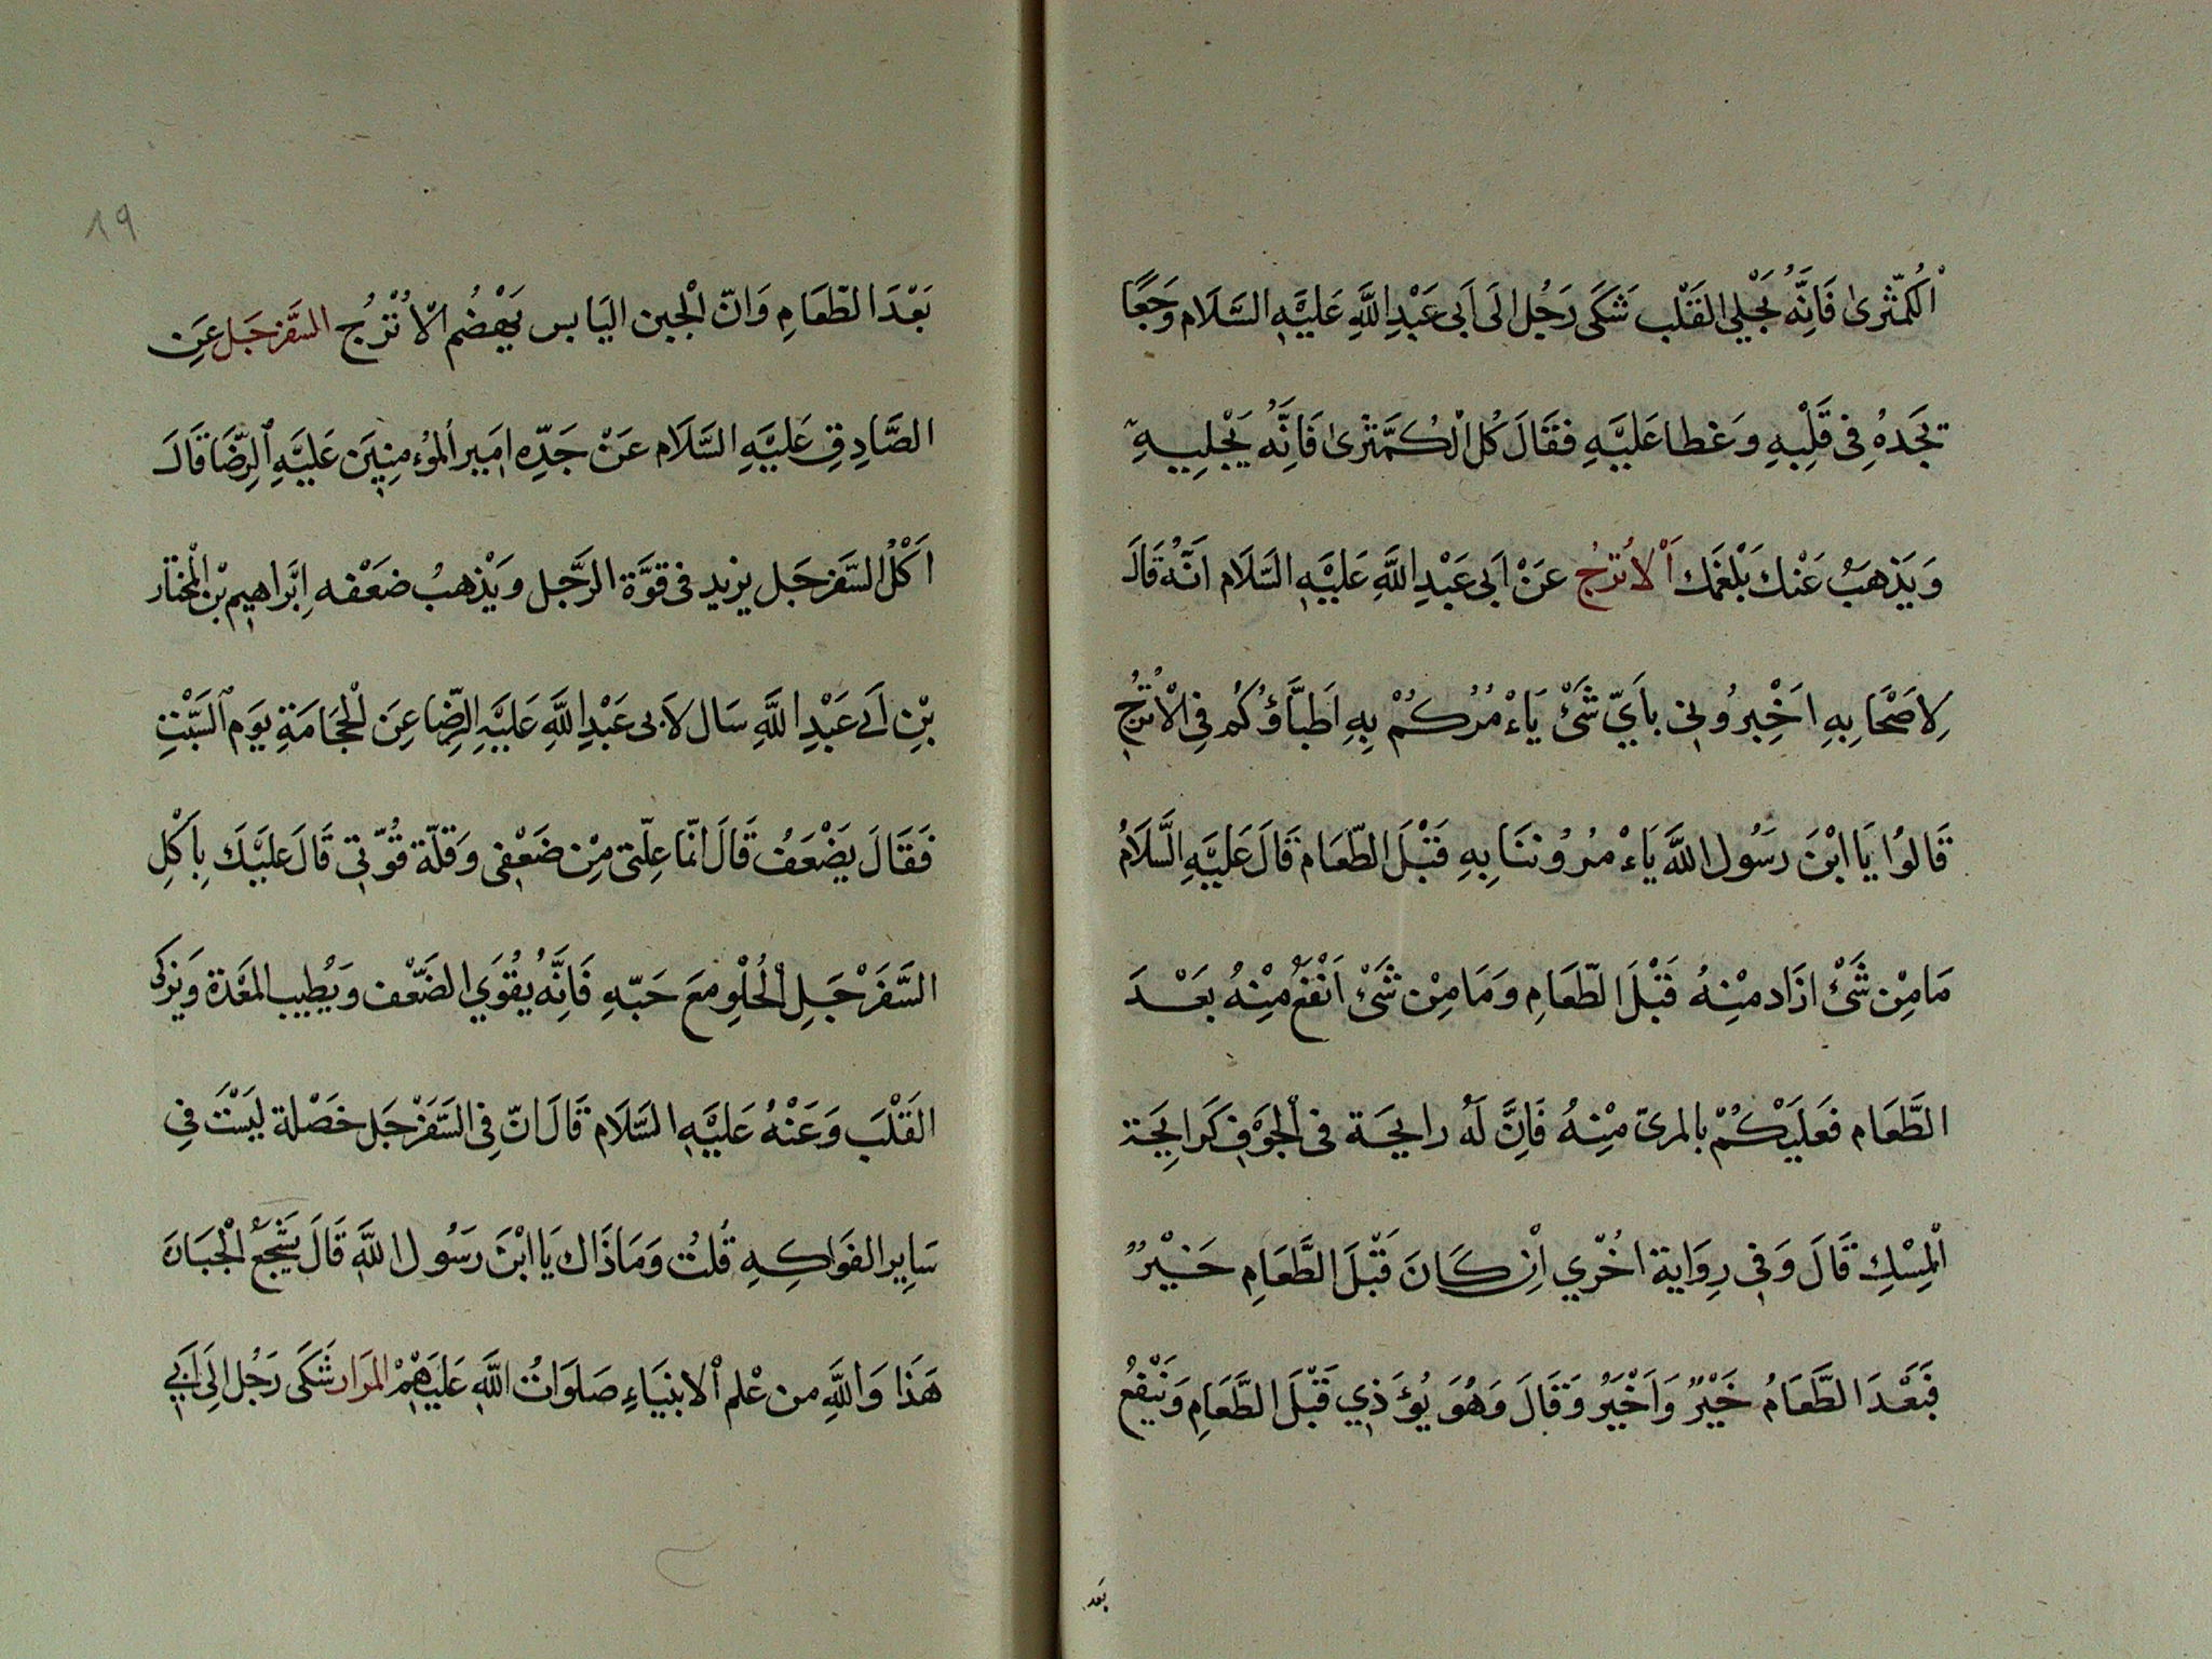 الْكُمَّثْرىٰ فَاِنَّهُ يُجْلِي القَلْب شَكَى رَجُل الَى اَبى عَبْدِ اللَّهِ عَلَيْهِ السَّلَام وَجَعًا
يَجَدهُ فِى قَلْبِهِ وَغطا عَلَيْهِ فقَالَ كُل الْكمَّثرىٰ فَاِنَّهُ يَجْلِيهِ
وَيَذهَبُ عَنْكَ بَلْغَمَك اَلْاُترُجُ عَنْ اَبى عَبْدِ اللَّهِ عَلَيْهِ السَّلَام اَنَّهُ قَالَ
لِاصَحَابِهِ اخَبِرُونِى بأَيّ شَىْ يَاءْمُرُكُمْ بِهِ اَطبَّاؤُكُم فِى الْاُترُجِّ
قَالوُا يَا ابْنَ رَسُول اللَّه يَاءْمرُوننَا بِهِ قَبْلَ الطّعَام قَالَ عَلَيْهِ السَّلَامُ
مَا مِنْ شَىْ ازَاد مِنْهُ قَبْلَ الطّعَامِ وَمَا مِنْ شَىْ اَنْفَعُ مِنْهُ بَعْدَ
الطَّعَام فَعَلَيْكُمْ بالمربّى مِنْهُ فَاِنَّ لَهُ رايحَة فى الْجَوْفِ كَرايِحَة
الْمِسْكِ قَالَ وَفِى رِوَاية اخُرّي اْنِ كَانَ قَبْلَ الطَّعَامِ خَيْرٌ
فَبَعْدَ الطَّعَامُ خَيْرٌ وَاَخْيَرُ وَقَالَ وَهُوَ يُؤَذِي قَبْلَ الطَّعَامِ وَيَنْفِعُ
بَعد
١٩
بَعْدَ الطَعَامِ وَانّ الْجبن اليَابس يَهْضُم الْاُتْرُجُ السَّفرْجَل عَنِ
الصَّادِقِ عَلَيْهِ السَّلَام عَنْ جَدِّهِ امِير المؤُمنِين عَلَيْهِ الرِّضَا قَالَ
اَكْلُ السَّفرْجَل يزيد فى قوَّة الرَّجل وَيْذهبُ ضعَفْه اِبْراهيم بْن الْمختَار
بْنِ اَبى عَبْدِ اللَّهِ سَال لاَبى عَبْدِ اللَّهِ عَلَيْهِ الرِّضا عنِ الْحجَامَةِ يوَم السَّبْتِ
فَقَالَ يَضْعَفُ قَالَ انمّا عِلّتى مِنْ ضَعْفِى وَقلّة قُوّتِى قَالَ عَلَيْكَ بِاَكْلِ
السَّفَرْجَلِ الْحُلْوِ معَ حَبّهِ فَاِنَّهُ يُقْوَي الضَّعْف وَيُطِيب المعْدة وَيزكى
القَلْبَ وَعَنْهُ عَلَيْهِ السَّلَام قَالَ انّ فِى السَّفَرْجَل خَصْلة ليَسْتَ فِى
سَايِر الفَواكِهِ قُلتُ وَمَا ذَاك يَا ابْنَ رَسُول اللَّهِ قَالَ يَشْجَعُ الْجَبَانَ
هَذَا وَاللَّهِ من عْلم الْانبْيَاءِ صَلوَاتُ اللَّهِ عَلَيْهِمْ المرَار شَكَى رَجُل الِىَ اَبِى